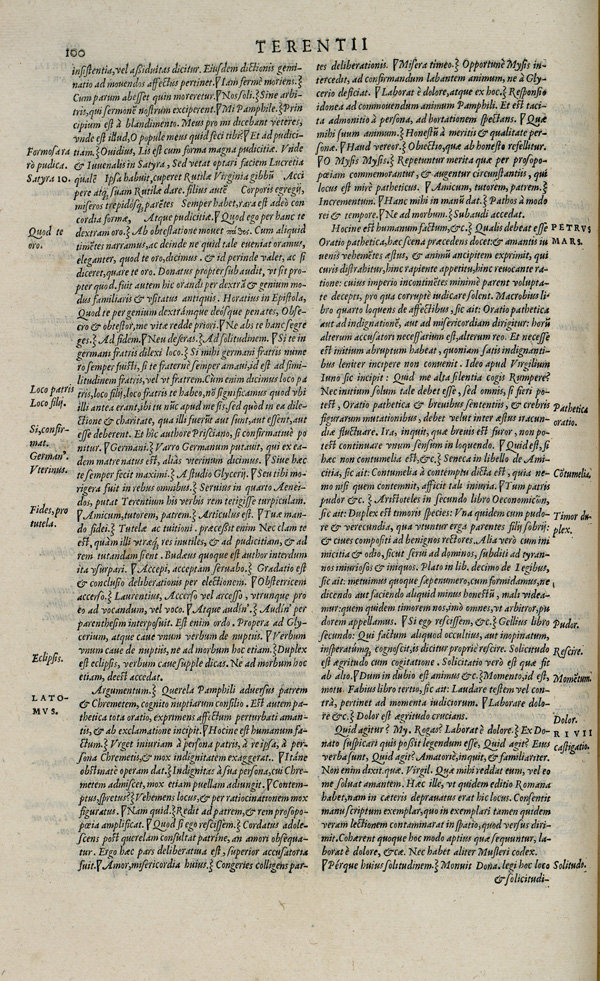 100
TERENTII
insistentia, vel assiduitas dicitur. Eiusdem dictionis gemi-
natio ad mouendos affectus pertinet. ∇Iam fermè moriens.}
Cum parum abesset quin moreretur. ∇Nos soli.}Sine arbi-
tris, qui sermonē nostrum exciperent. ∇Mi Pamphile.}Prin-
cipium est à blandimento. Meus pro mi dicebant veteres,
vnde est illud, O popule meus quid feci tibi? Et ad pudici-
Formosara
tiam.}Ouidius, Lis est cum forma magna pudicitiæ. Vnde
rò pudica.
& Iuuenalis in Satyra, Sed vetat optari faciem Lucretia
Satyra 10.
qualē Ipsa habuit, cuperet Rutilæ Virginia gibbū Acci
pere atq; suam Rutilæ dare. filius autē Corporis egregij,
miseros trepidosq; parētes Semper habet, rara est adeò con
cordia formæ, Atque pudicitiæ. ∇Quod ego per hanc te
Quod te
oro.
dextram oro.} Ab obtestatione mouet Cum aliquid
timētes narramus, ac deinde ne quid tale eueniat oramus,
eleganter, quod te oro, dicimus. & id perinde valet, ac si
diceret, quare te oro. Donatus propter subaudit, vt sit pro-
pter quod. fuit autem hic orandi per dextrā & genium mo-
dus familiaris & vsitatus antiquis. Horatius in Epistola,
Quod te per genium dextrámque deósque penates, Obse-
cro & obtestor, me vitæ redde priori. ∇Ne abs te hanc segre
ges.} Ad fidem. ∇Neu deseras.} Ad solitudinem. ∇Si te in
germani fratris dilexi loco.} Si mihi germani fratris nume
ro semper fuisti, si te fraternè semper amaui, id est ad simi-
litudinem fratris, vel vt fratrem. Cùm enim dicimus loco pa
Loco patris
tris, loco filij, loco fratris te habeo, nō significamus quod vbi
Loco filij.
illi antea erant, ibi tu nūc apud me sis, sed quòd in ea dile-
ctione & charitate, qua illi fuerūt aut sunt, aut essent, aut
Si, confir-
mat.
esse deberent. Et hîc authore Prisciano, si confirmatiuè po
nitur. ∇Germani.} Varro Germanum putauit, qui ex ea-
Germanᵒ.
dem matre natus est, aliàs vterinum dicimus. ∇Siue hæc
Vterinus.
te semper fecit maximi.} A studio Glycerij. ∇Seu tibi mo-
rigera fuit in rebus omnibus.} Seruius in quarto Aenei-
dos, putat Terentium his verbis rem tetigisse turpiculam.
Fides, pro
tutela.
∇Amicum, tutorem, patrem.} Articulus est. ∇Tuæ man-
do fidei.} Tutelæ ac tuitioni. præcessit enim Nec clam te
est, quàm illi vtræq; res inutiles, & ad pudicitiam, & ad
rem tutandam sient. Budæus quoque est author interdum
ita vsurpari. ∇Accepi, acceptam seruabo.} Gradatio est
& conclusio deliberationis per electionem. ∇Obstetricem
accerso.} Laurentius, Accerso vel arcesso, vtrunque pro
eo ad vocandum, vel voco. ∇Atque audin'.} Audin' per
parenthesim interposuit. Est enim ordo. Propera ad Gly-
cerium, atque caue vnum verbum de nuptiis. ∇Verbum
vnum caue de nuptiis, ne ad morbum hoc etiam.}Duplex
Eclipsis.
est eclipsis, verbum caue supple dicas. Ne ad morbum hoc
etiam, deest accedat.
LATO-
MVS.
Argumentum.} Querela Pamphili aduersus patrem
& Chremetem, cognito nuptiarum consilio. Est autem pa-
thetica tota oratio, exprimens affectum perturbati aman-
tis, & ab exclamatione incipit. ∇Hoccine est humanum fa-
ctum.} Vrget iniuriam à persona patris, à re ipsa, à per-
sona Chremetis, & mox indignitatem exaggerat. ∇Itáne
obstinatè operam dat.} Indignitas à sua persona, cui Chre-
metem admiscet, mox etiam puellam adiungit. ∇Contem-
ptus, spretus?} Vehemens locus, & per ratiocinationem mox
figuratus. ∇Nam quid.} Redit ad patrem, & rem prosopo-
pœia amplificat. ∇Quod si ego rescissem.} Cordatus adole-
scens post querelam consultat patríne, an amori obsequa-
tur. Ergo hæc pars deliberatiua est, superior accusatoria
fuit. ∇Amor, misericordia huius.} Congeries colligens par-
tes deliberationis. ∇Misera timeo.} Opportunè Mysis in-
tercedit, ad confirmandum labantem animum, ne à Gly-
cerio deficiat. ∇Laborat è dolore, atque ex hoc.} Responsio
idonea ad commouendum animum Pamphili. Et est taci-
ta admonitio à persona, ad hortationem spectans. ∇Quæ
mihi suum animum.} Honestū à meritis & qualitate per-
sonæ. ∇Haud vereor.} Obiectio, quæ ab honesto refellitur.
∇O Mysis Mysis.} Repetuntur merita quæ per prosopo-
pœiam commemorant, & augentur circunstantiis, qui
locus est mirè patheticus. ∇Amicum, tutorem, patrem.}
Incrementum. ∇Hanc mihi in manū dat.} Pathos à modo
rei & tempore. ∇Ne ad morbum.} Subaudi accedat.
Hoccine est humanum factum, &c.} Qualis debeat esse
PETRVS
MARS.
Oratio pathetica, hæc scena præcedens docet: & amantis iu
uenis vehemētes æstus, & animū ancipitem exprimit, qui
curis distrahitur, hinc rapiente appetitu, hinc reuocante ra-
tione: cuius imperio incontinētes minimè parent volupta-
te decepti, pro qua corruptè iudicare solent. Macrobius li-
bro quarto loquens de affectibus, sic ait: Oratio pathetica
aut ad indignationē, aut ad misericordiam dirigitur: horū
alterum accusatori necessarium est, alterum reo. Et necesse
est initium abruptum habeat, quoniam satis indignanti-
bus leniter incipere non conuenit. Ideo apud Virgilium
Iuno sic incipit: Quid me alta silentia cogis Rumpere?
Nec initium solum tale debet esse, sed omnis, si fieri po-
Pathetica
oratio.
test, Oratio pathetica & breuibus sententiis, & crebris
figurarum mutationibus, debet velut inter æstus iracun-
diæ fluctuare. Ira, inquit, quæ breuis est furor, non po-
test continuare vnum sensum in loquendo. ∇Quid est, si
hæc non contumelia est, &c.} Seneca in libello de Ami-
Cōtumelia.
citia, sic ait: Contumelia à contemptu dicta est, quia ne-
mo nisi quem contemnit, afficit tali iniuria. ∇Tum patris
pudor &c.} Aristoteles in secundo libro Oeconomicῶn,
Timor du-
plex.
sic ait: Duplex est timoris species: Vna quidem cum pudo-
re & verecundia, qua vtuntur erga parentes filij sobrij:
& ciues compositi ad benignos rectores. Alia verò cum ini
micitia & odio, sicut serui ad dominos, subditi ad tyran-
nos iniuriosos & iniquos. Plato in lib. decimo de legibus,
sic ait: metuimus quoque sæpenumero, cum formidamus, ne
dicendo aut faciendo aliquid minus honestū, mali videa-
mur: quem quidem timorem nos, imò omnes, vt arbitror, pu
Pudor.
dorem appellamus. ∇Si ego rescissem, &c.} Gellius libro
secundo: Qui factum aliquod occultius, aut inopinatum,
Rescire.
insperatúmq; cognoscit, is dicitur propriè rescire. Solicitudo
est ægritudo cum cogitatione. Solicitatio verò est quæ fit
ab alto. ∇Dum in dubio est animus &c.}Momento, id est,
Momētum.
motu. Fabius libro tertio, sic ait: Laudare testem vel con-
trà, pertinet ad momenta iudiciorum. ∇Laborate dolo-
Dolor.
re &c.} Dolor est ægritudo crucians.
RIVII
castigatio.
Quid agitur? My. Rogas? Laborat è dolore.} Ex Do-
nato suspicari quis possit legendum esse, Quid agit? Eius
verba sunt, Quid agit? Amatoriè, inquit, & familiariter.
Non enim dixit. quæ. Virgil. Quæ mihi reddat eum, vel eo
me soluat amantem. Hæc ille, vt quidem editio Romana
habet, nam in cæteris deprauatus erat hic locus. Consentit
manuscriptum exemplar, quo in exemplari tamen quidem
veram lectionem contaminarat in spatio, quod versus diri-
mit. Cohærent quoque hoc modo aptius quæ sequuntur, la-
borat è dolore, &cæ. Nec habet aliter Musleri codex.
∇Pérque huius solitudinem.} Monuit Dona. legi hoc loco
Solitudo.
& solicitudi-